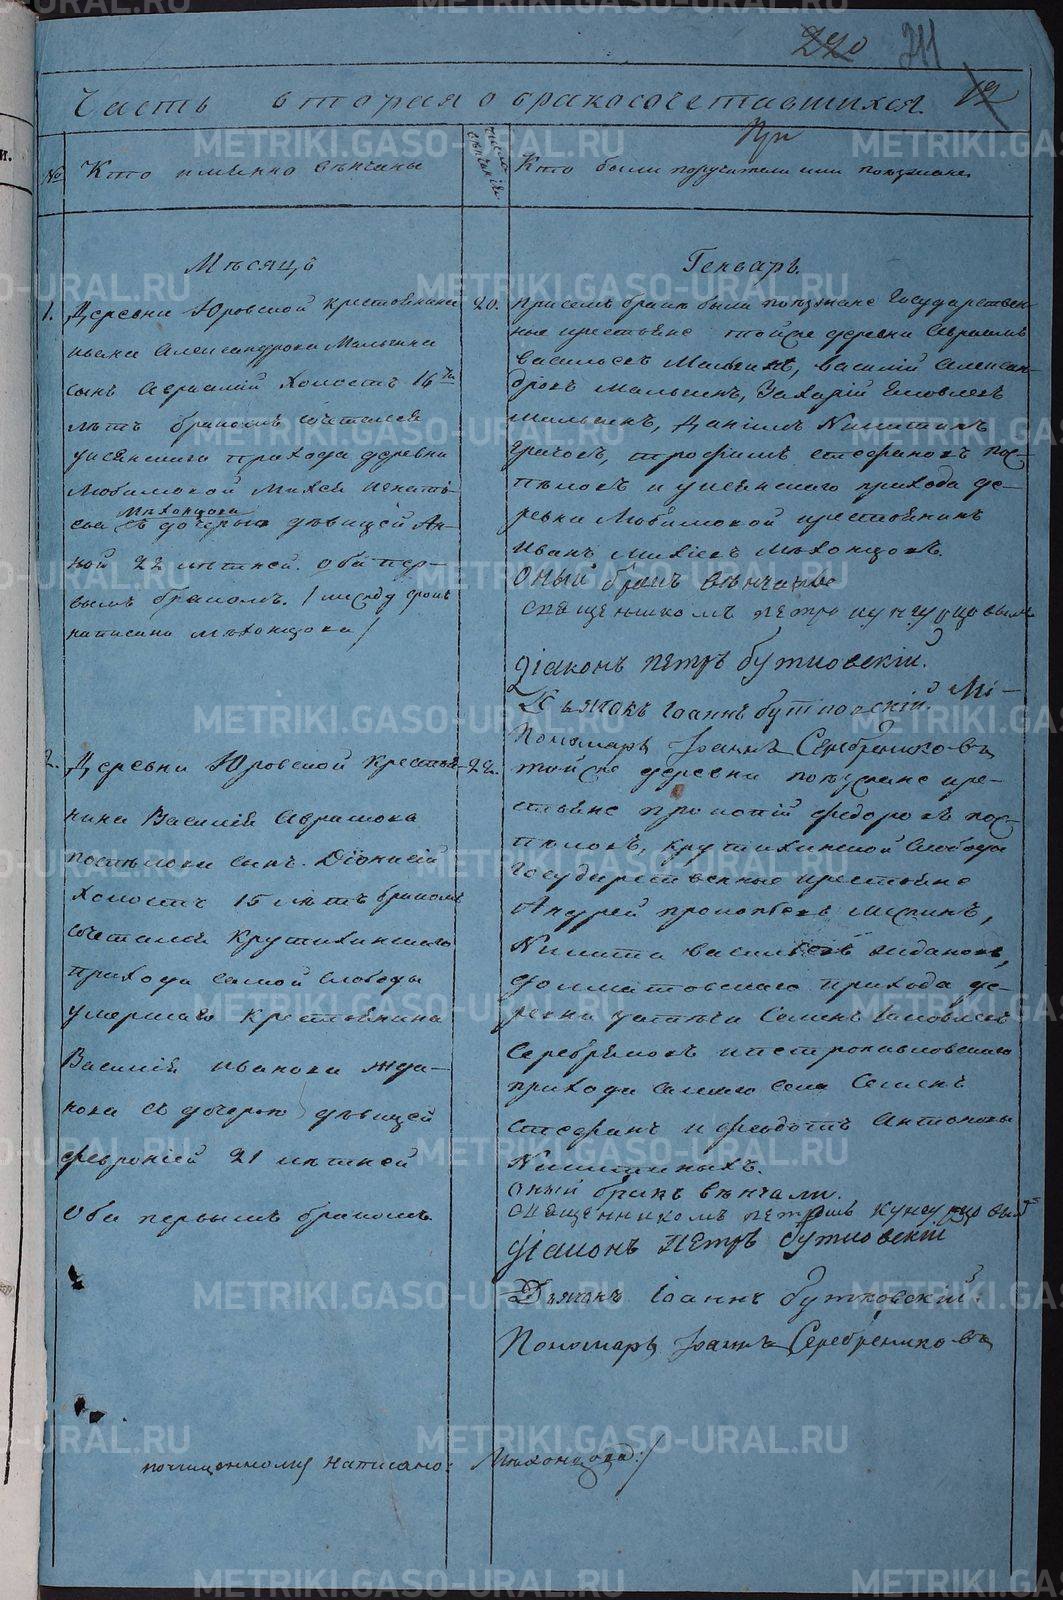 220 211
Часть вторая о бракосочетавшихся. 12
№ Кто имянно вѣнчаны
число вѣнчанія
Кто были поручители или поѣзжане
Мѣсяцъ
Генварь.
1. Деревни Юровской крестьянина
Ивана Александрова Мальгина
сынъ Аврамій холостъ 16ти
лѣтъ бракомъ сочтался
прихода деревни
Любимовой Михея Игнать-
ева Мѣхонцова съ дочерью дѣвицей Ан-
ной 22 лѣтней. Оба пер-
вымъ бракомъ. / между строкъ
написано Мѣхонцова /
20.
При семъ бракѣ были поѣзжане Государствен-
ные крестьяне той же деревни Аврамъ
Васильевъ Мальгинъ, Василій Алексан-
дровъ Мальгинъ, Захарій Яковлевъ
Мальгинъ, Даніилъ Никитинъ
Грачовъ, Трофимъ Стефановъ Пос-
пѣловъ и прихода де-
ревни Любимовой крестьянинъ
Иванъ Михѣевъ Мѣхонцовъ.
Оный бракъ вѣнчанъ
священникомъ Петромъ Кунгурцовымъ
Діаконъ Петръ Бутковскій.
Дьячокъ Іоаннъ Бутковскій.
Пономарь Іоаннъ Серебрениковъ
2. Деревни Юровской крестья-
нина Василія Аврамова
Поспѣлова сынъ Діонисій
холостъ 15 лѣтъ бракомъ
сочетался Крутихинскаго
прихода самой слободы
умершаго крестьянина
Василія Иванова Жда-
нова съ дочерью дѣвицей
Февроніей 21 лѣтней
Оба первымъ бракомъ.
22.
той же деревни поѣзжане кре-
стьяне Прокопій Федоровъ Пос-
пѣловъ, Крутихинской слободы
Государственные крестьяне
Андрей Прокопьевъ
Никита Васильевъ Ждановъ,
Долматовскаго прихода де-
ревни Семенъ Яковлевъ
Серебряковъ и Петропавловскаго
прихода самаго села Семенъ
Стефанъ и Феодотъ Антоновы
Никитиныхъ.
Оный бракъ вѣнчали.
священникомъ Петромъ Кунгурцовымъ
Діаконъ Петръ Бутковскій
Дьячокъ Іоаннъ Бутковскій.
Пономарь Іоаннъ Серебрениковъ
почищенному написано: Мѣхонцова:/
METRIKI.GASO-URAL.RU